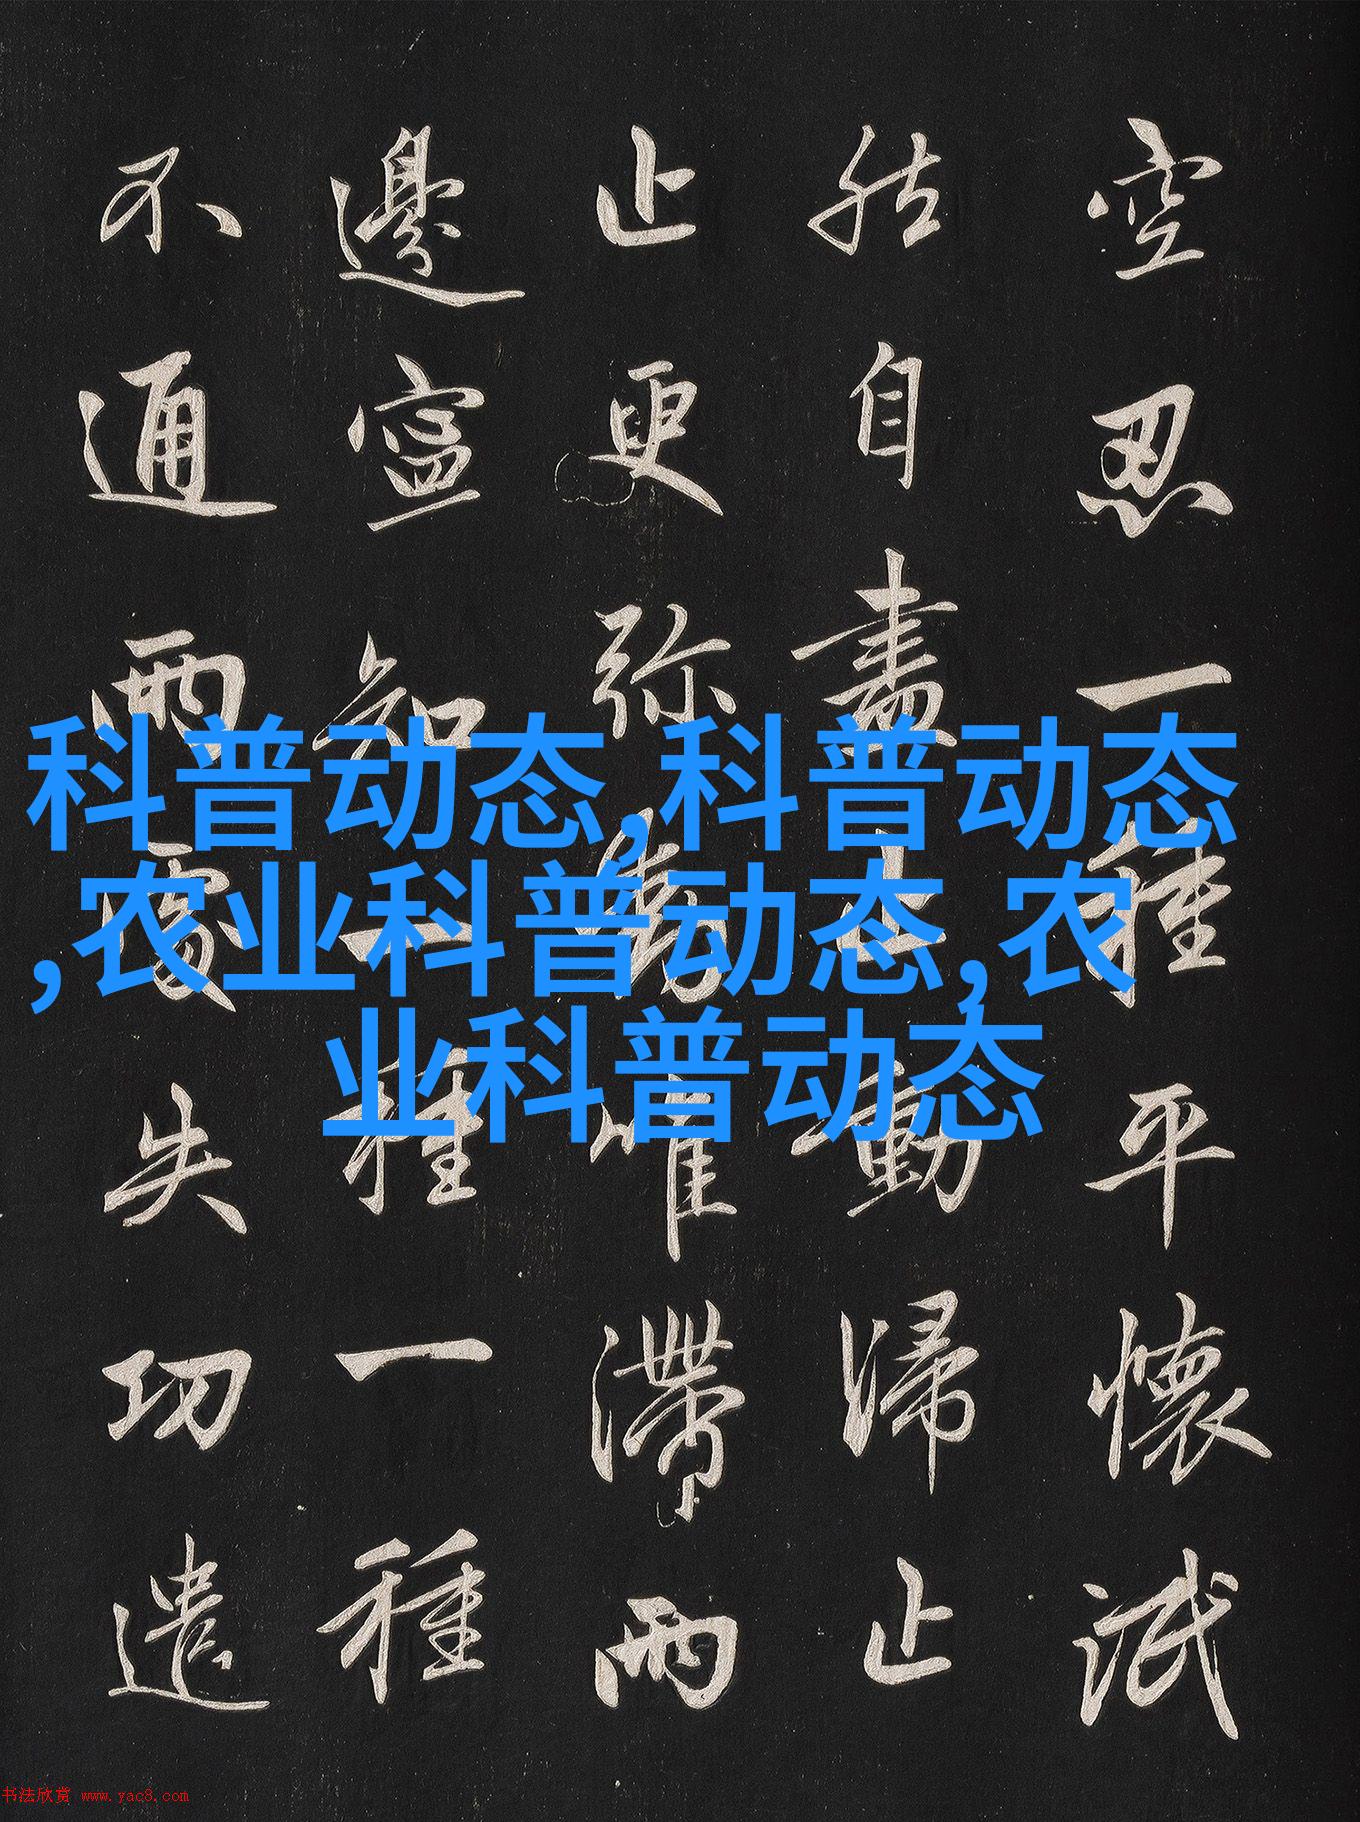 空忍一種平懷泯
然自盡止動歸止
止更弥動唯滯兩
邊寧知一種一種
不通兩處失功遣
科普动态,科普动态
,农业科普动态,农
业科普动态
书法欣赏 www.yac8.com